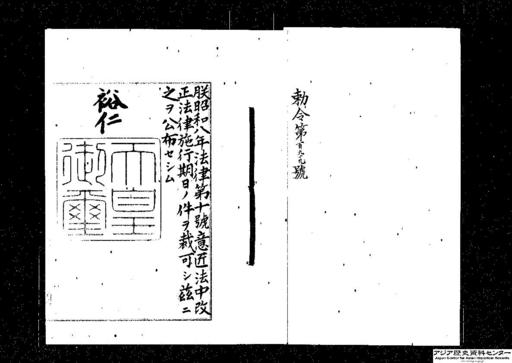 勅令第百九九號
朕昭和八年法律第十號意匠法中改
正法律施行期日ノ件ヲ裁可シ茲ニ
之ヲ公布セシム
裕仁
天皇
御璽
アジア歴史資料センター
Japan Center for Asian Historical Records